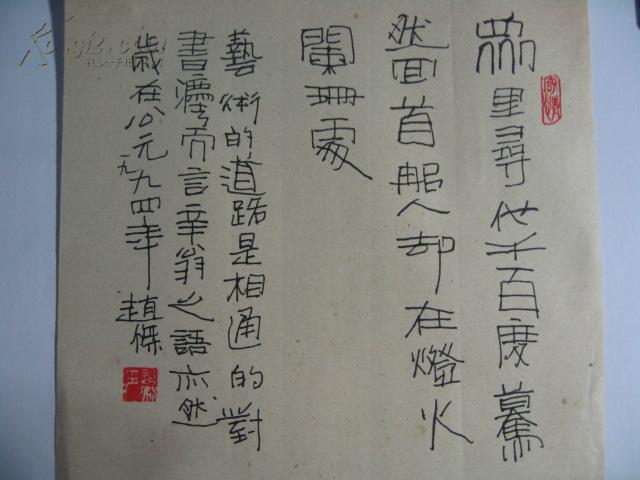 眾里尋他千百度驀
然回首那人却在燈火
闌珊處
藝術的道路是相通的對
書灋而言辛翁之語亦然
歲在公元一九九四年 趙傑